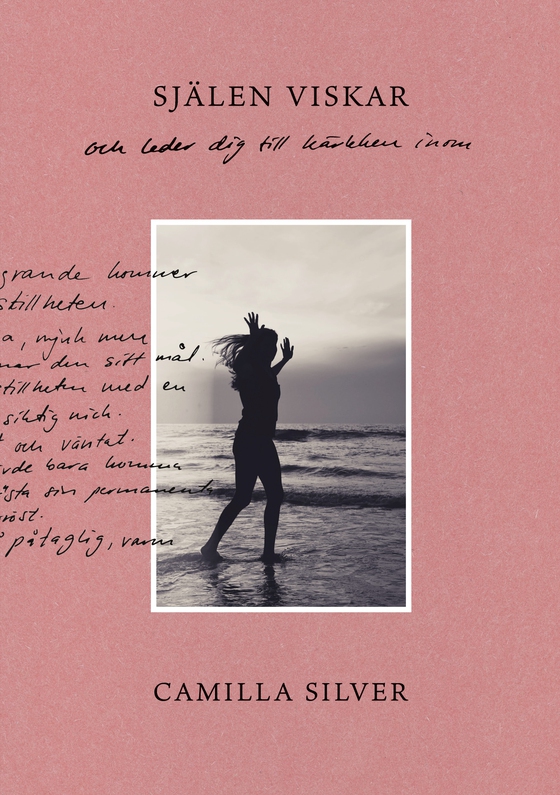 SJÄLEN VISKAR
och leder dig till kärleken inom
grande kommer
stillheten.
a, mjuk men
nar den sitt mål.
stillheten med en
siktig nick.
t och väntat.
vde bara komma
sta sin permanenta
röst.
påtaglig, varm
CAMILLA SILVER